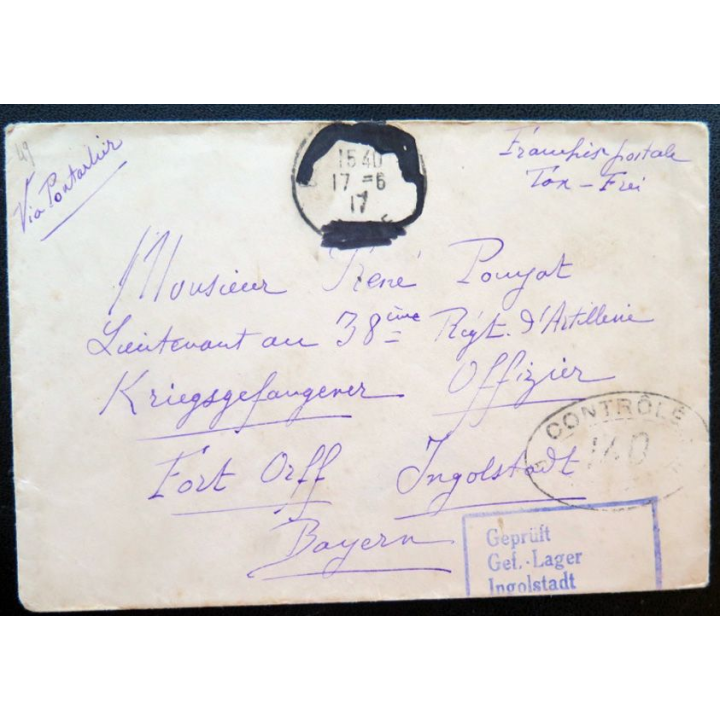 49
Via Pontarlier
1540
17 - 6
17
E
Franchise postale
Tax - Frei
Monsieur René Pouyat
Lieutenant au 38ème Régt. d'Artillerie
Kriegsgefangener Offizier
Fort Orff Ingolstadt
Bayern
CONTRÔLE
140
Geprüft
Gef.-Lager
Ingolstadt